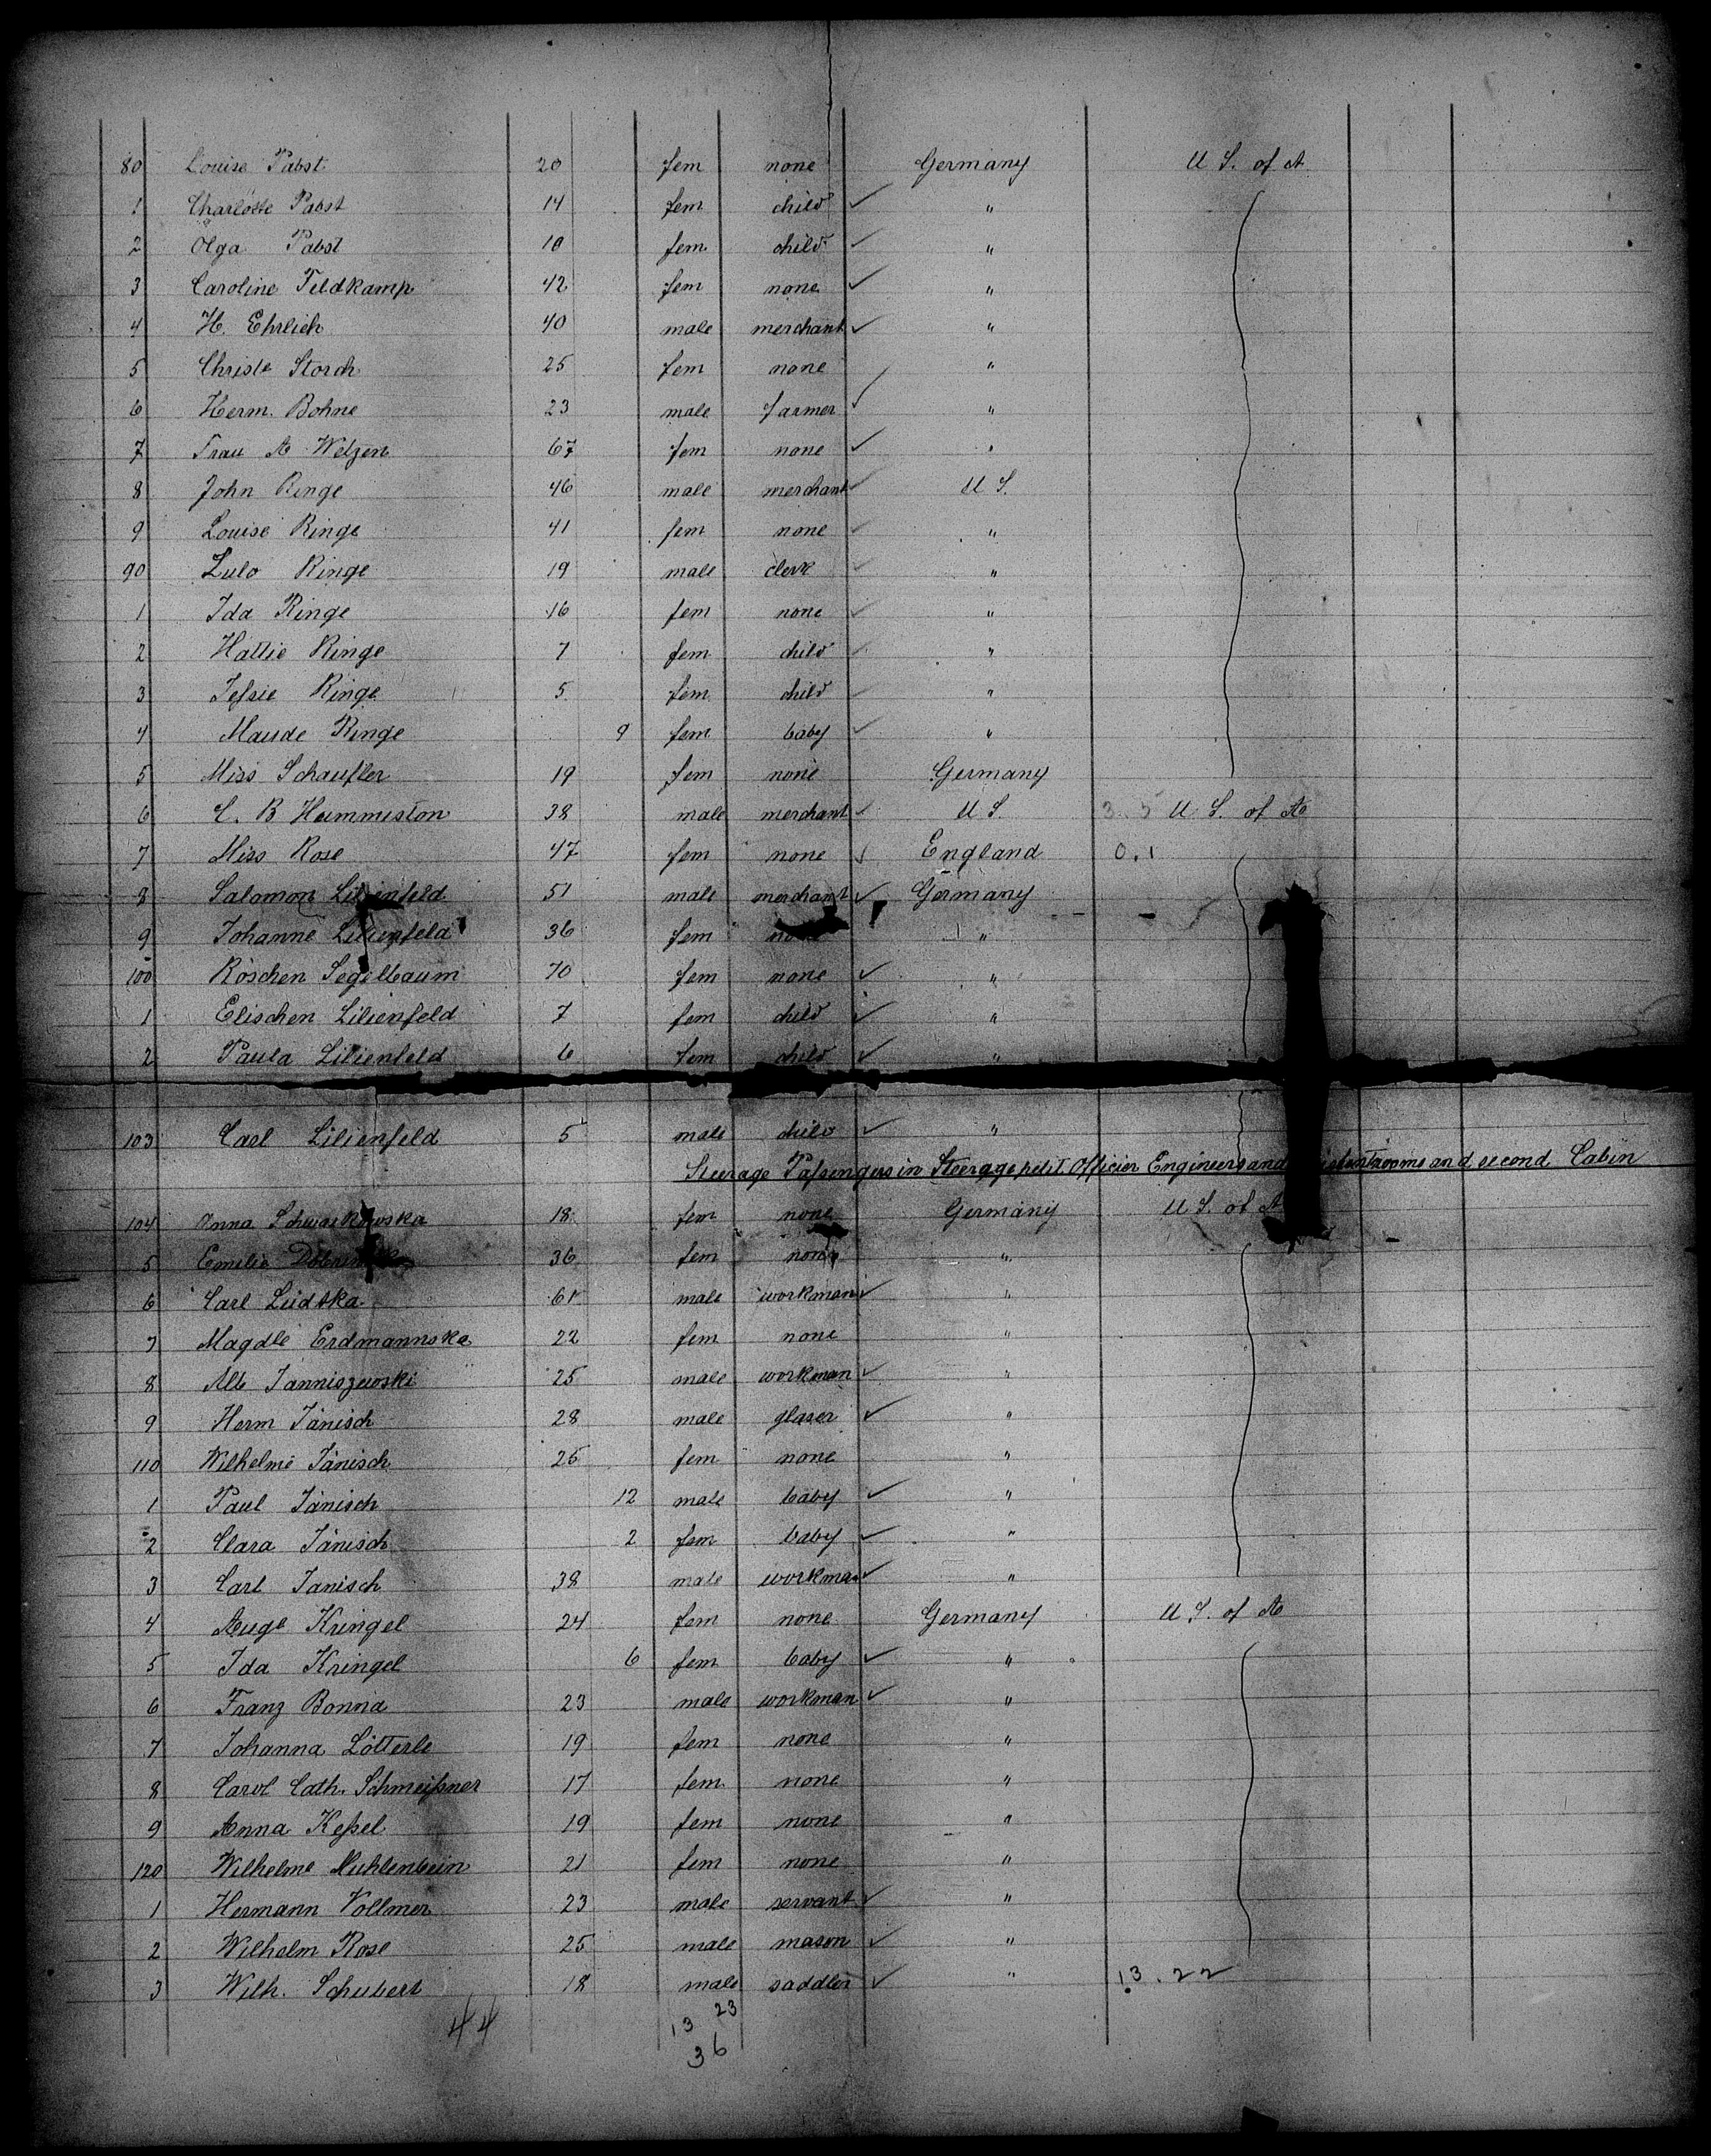 80 Louise Pabst 20 fem none Germany U S. of A
1 Charlotte Pabst 14 fem child ✓ "
2 Olga Pabst 10 fem child ✓ "
3 Caroline Feldkamp 42 fem none ✓ "
4 H. Ehrlich 40 male merchant ✓ "
5 Christe Storch 25 fem none "
6 Herm. Bohne 23 male farmer ✓ "
7 Frau A Welzen 67 fem none ✓ "
8 John Ringe 46 male merchant ✓ U S.
9 Louise Ringe 41 fem none ✓ "
90 Lulo Ringe 19 male clerk ✓ "
1 Ida Ringe 16 fem none ✓ "
2 Hattie Ringe 7 fem child ✓ "
3 Jessie Ringe 5 fem child ✓ "
4 Maude Ringe 9 fem baby ✓ "
5 Miss Schaufler 19 fem none Germany
6 B Hummiston 38 male merchant ✓ U S. 3.5 U S. of A
7 Miss Rose 47 fem none ✓ England 0.1
8 Salomon Lilienfeld 51 male merchant ✓ Germany
9 Johanne Lilienfeld 36 fem none "
100 Röschen Segelbaum 70 fem none ✓ "
1 Elischen Lilienfeld 7 fem child ✓ "
2 Paula Lilienfeld 6 fem child ✓ "
103 Carl Lilienfeld 5 male child ✓ "
Steerage Passengers in Steerage petit Officier Engineers and second Cabin
104 Anna 18 fem none Germany U S. of A
5 Emilie 36 fem none "
6 Carl Lüdtka 61 male workman ✓ "
7 Magdle Erdmannska 22 fem none "
8 Alb Janniszewski 25 male workman ✓ "
9 Herm Jänisch 28 male glaser ✓ "
110 Wilhelme Jänisch 25 fem none "
1 Paul Jänisch 12 male baby ✓ "
2 Clara Jänisch 2 fem baby ✓ "
3 Carl Janisch 38 male workman ✓ "
4 Auge Kringel 24 fem none Germany U S. of A
5 Ida Kringel 6 fem baby ✓ "
6 Franz Bonna 23 male workman ✓ "
7 Johanna Lötterle 19 fem none "
8 Carol Cath. Schmeißner 17 fem none "
9 Anna Keßel 19 fem none "
120 Wilhelme Muhlenbein 21 fem none "
1 Hermann Vollmer 23 male servant ✓ "
2 Wilhelm Rose 25 male mason ✓ "
3 Wilh. Schubert 18 male saddler ✓ " 13.22
44 13 23
36